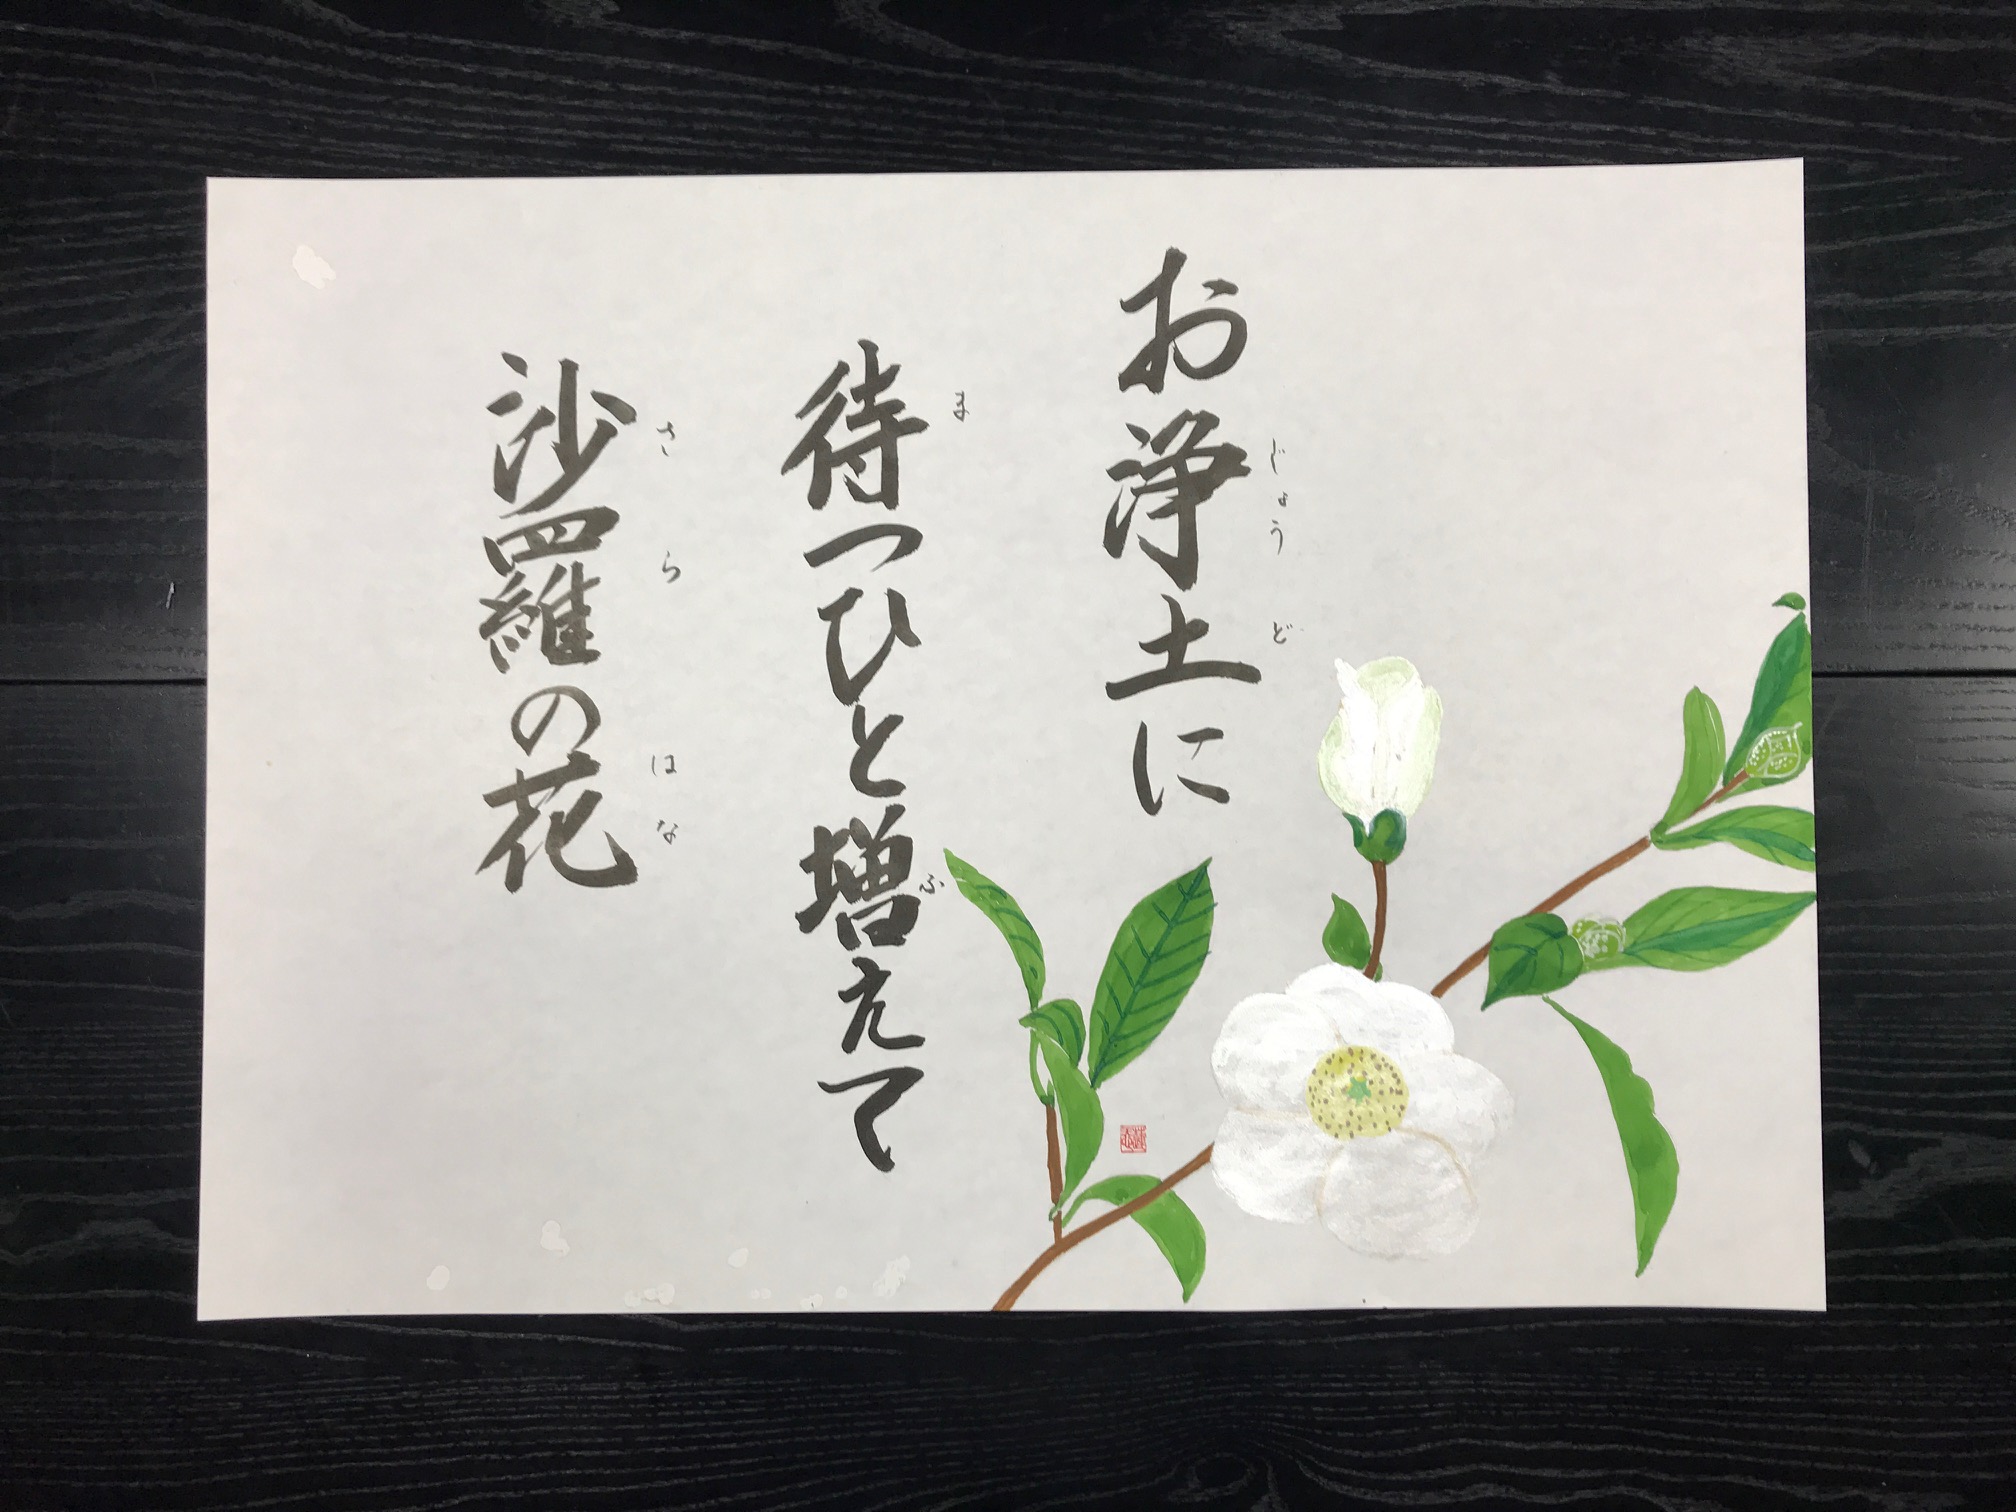 お浄土に
じょうど
待つひと増えて
ま
ふ
沙羅の花
さら
はな